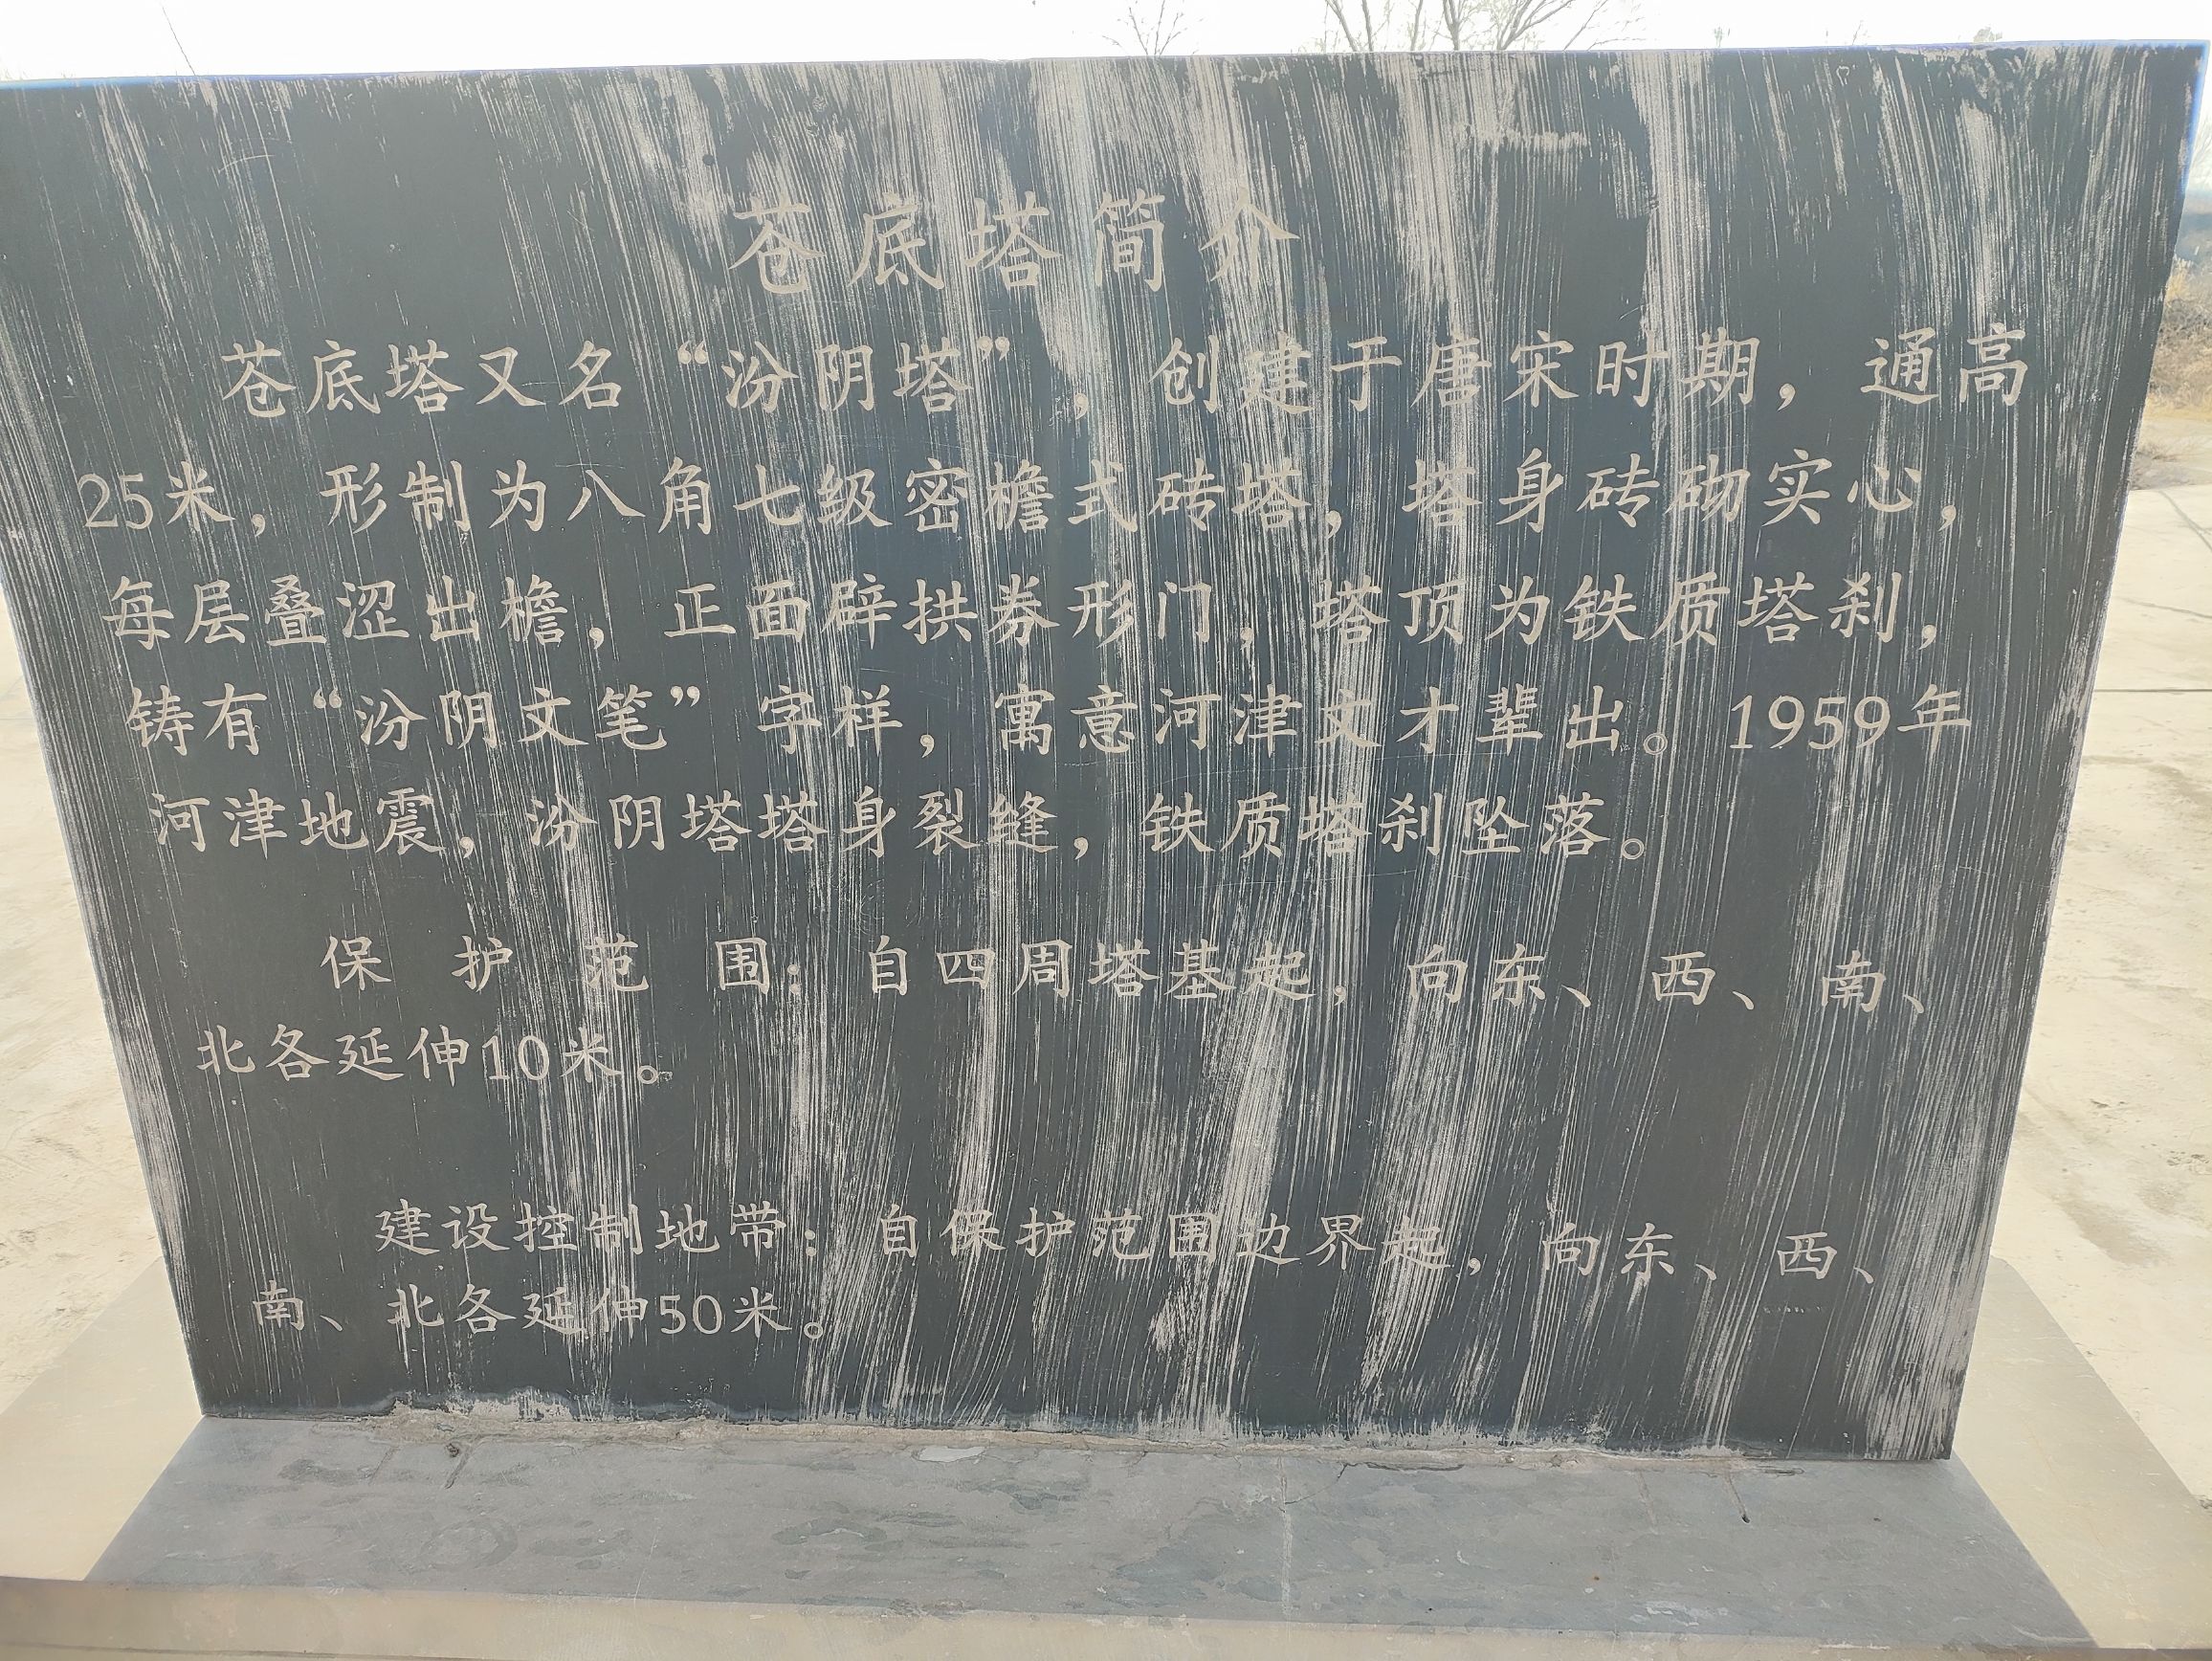 苍底塔简介
苍底塔又名“汾阴塔”，创建于唐宋时期，通高
25米，形制为八角七级密檐式砖塔，塔身砖砌实心，
每层叠涩出檐，正面辟拱券形门，塔顶为铁质塔刹，
铸有“汾阴文笔”字样，寓意河津文才辈出。1959年
河津地震，汾阴塔塔身裂缝，铁质塔刹坠落。
保护范围：自四周塔基起，向东、西、南、
北各延伸10米。
建设控制地带：自保护范围边界起，向东、西、
南、北各延伸50米。